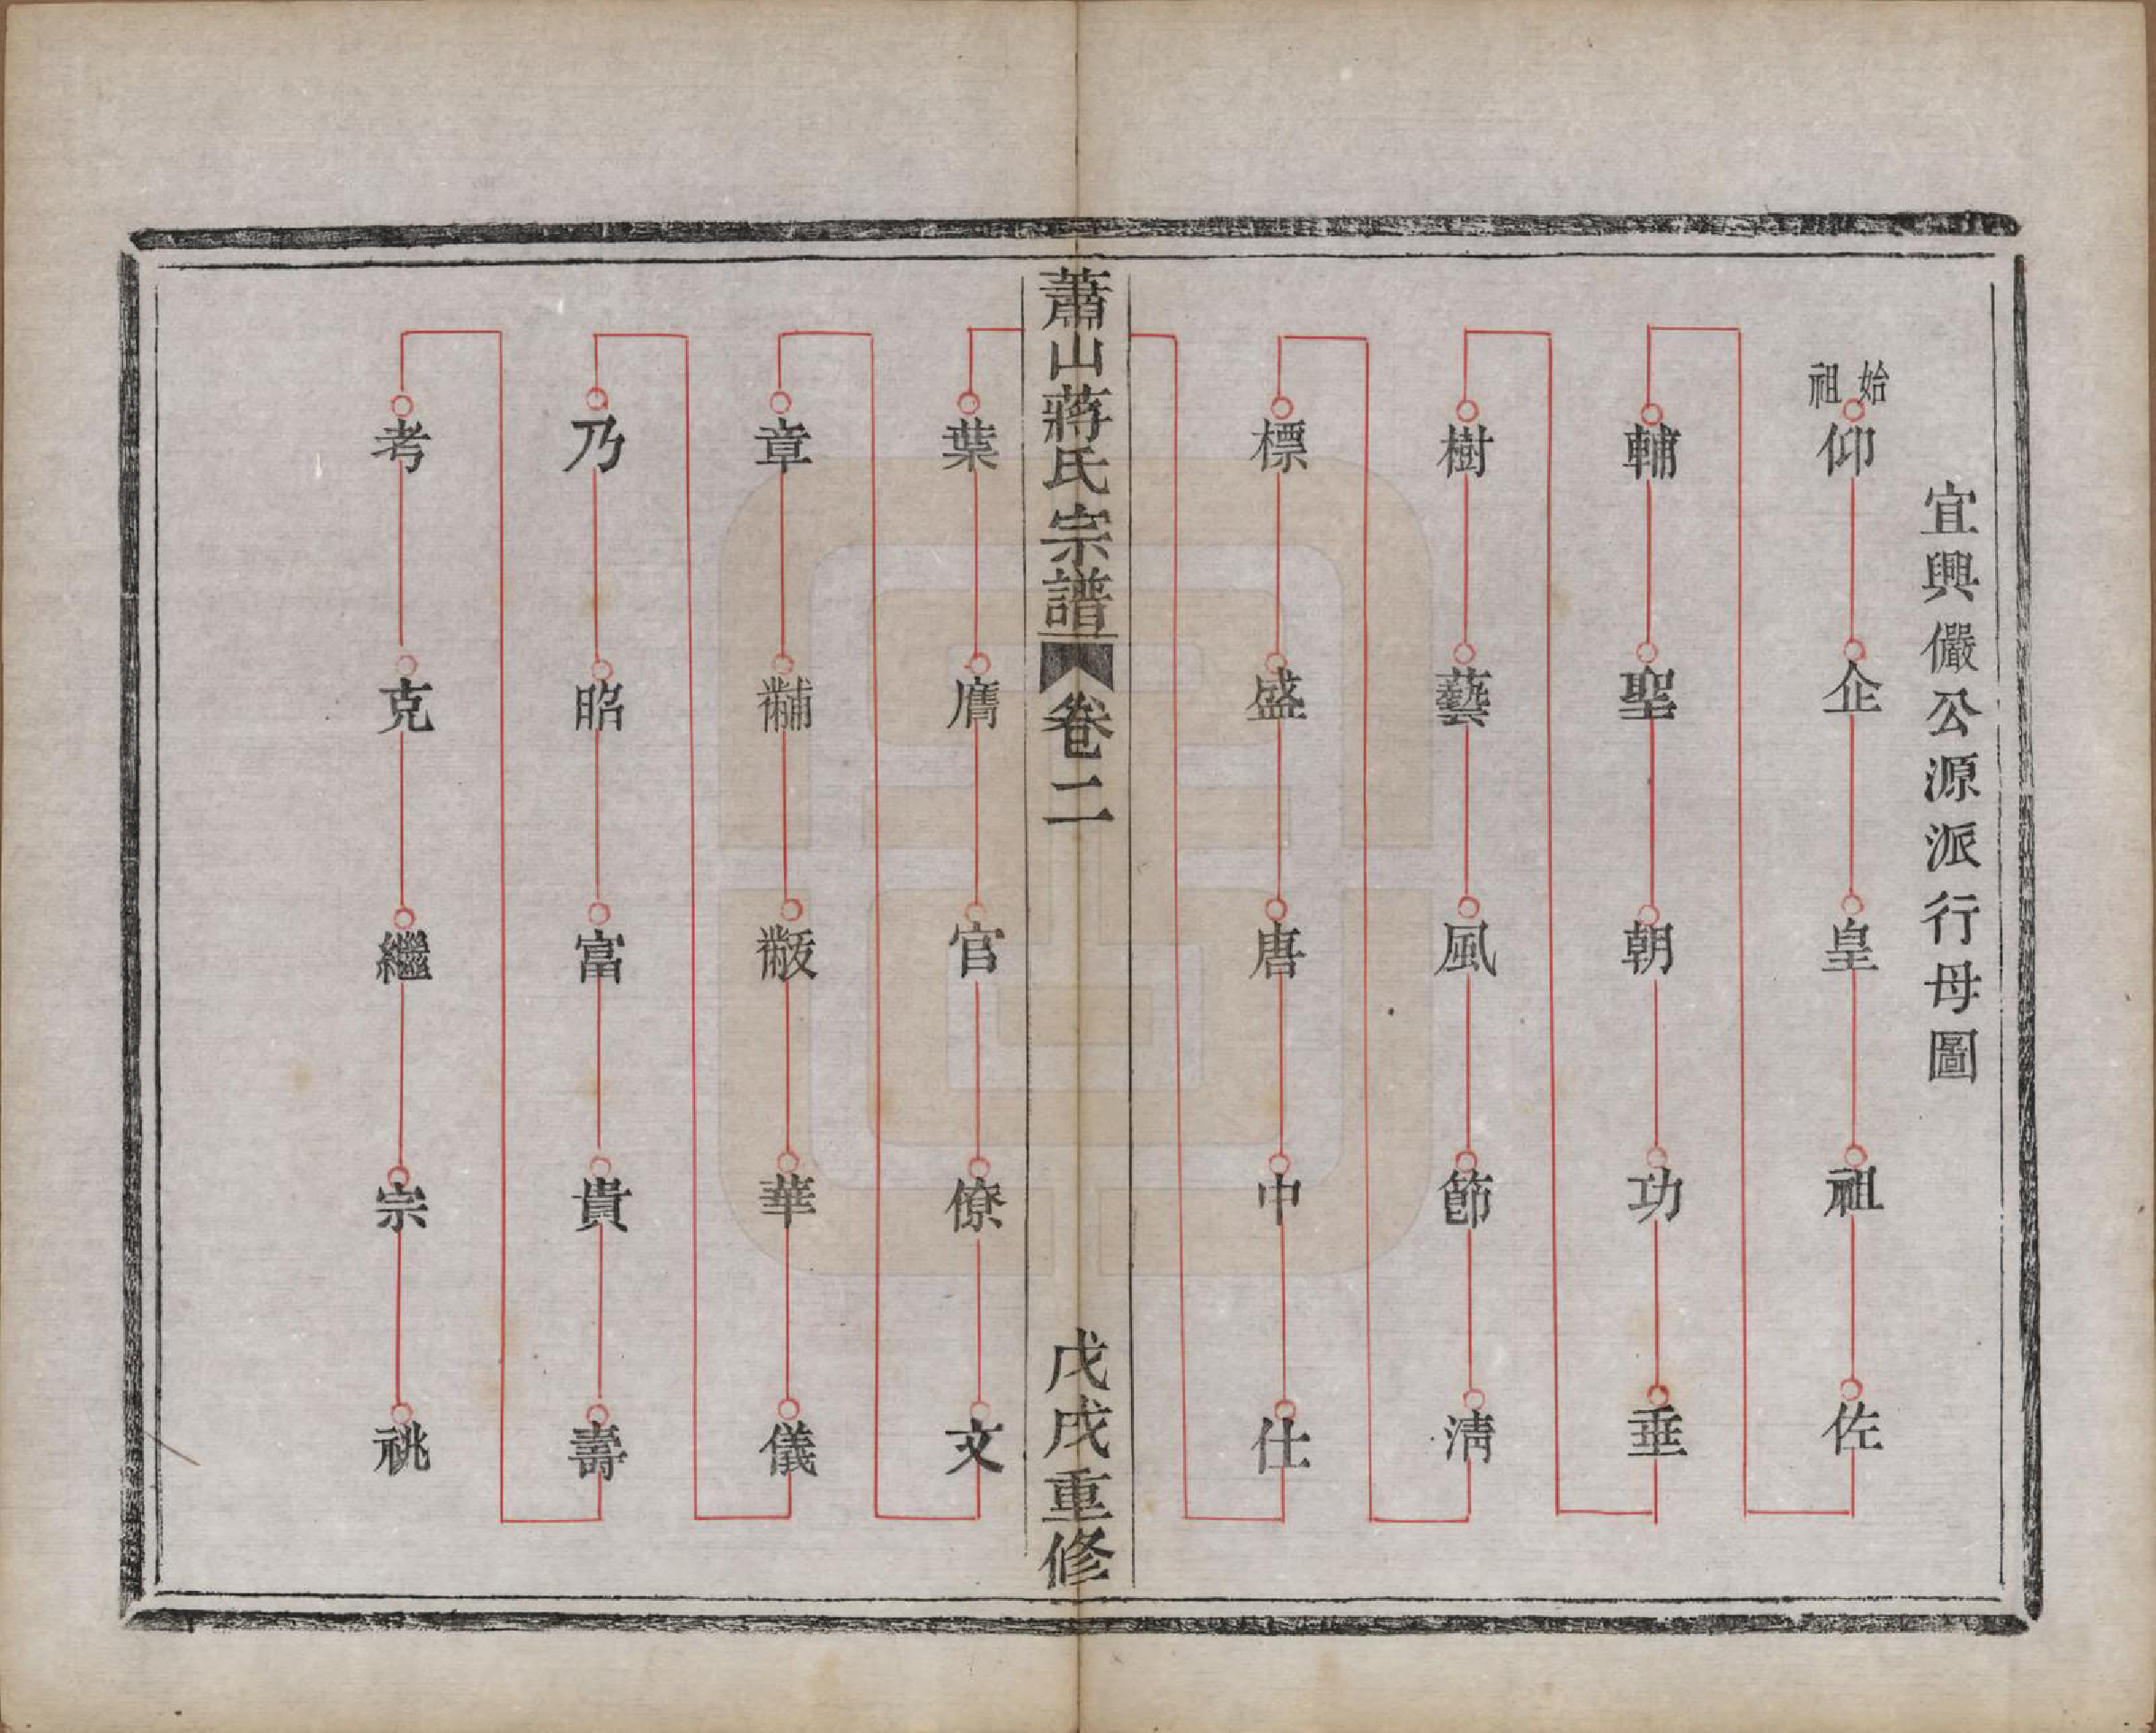 宜興儼公源派行母圖
始祖
仰企皇祖佐
輔聖朝功垂
樹藝風節淸
標盛唐中仕
蕭山蔣氏宗譜 卷二 戊戌重修
葉膺官僚文
章黼黻華儀
乃昭富貴壽
考克繼宗祧